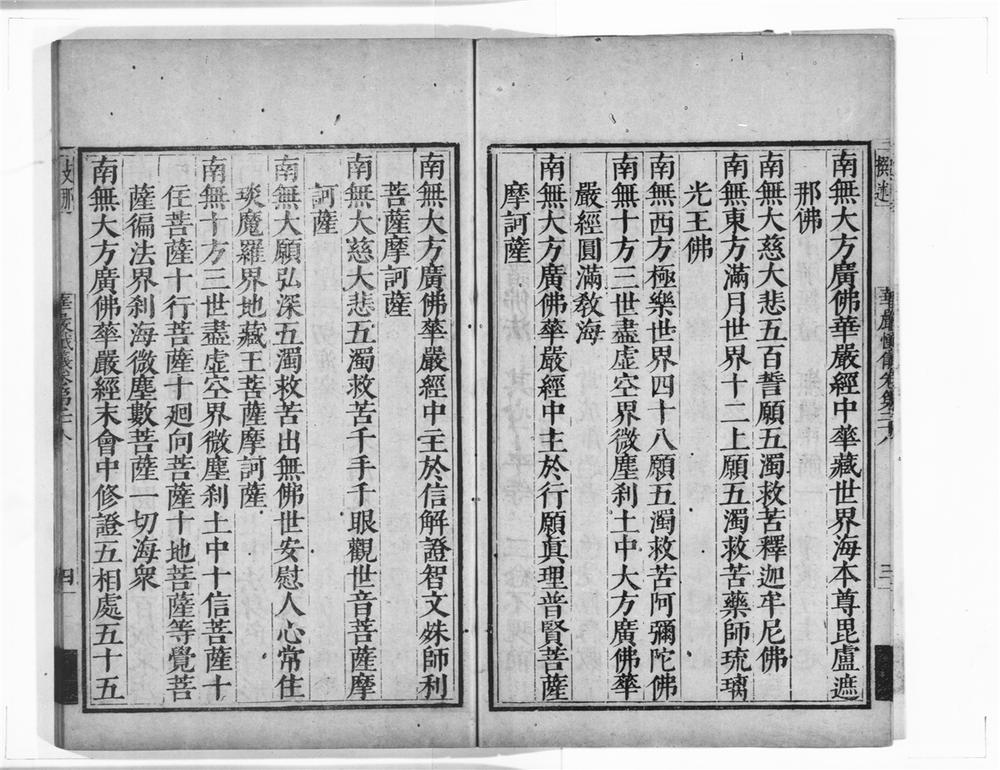 南無大方廣佛華嚴經中華藏世界海本尊毘盧遮
那佛
南無大慈大悲五百誓願五濁救苦釋迦牟尼佛
南無東方滿月世界十二上願五濁救苦藥師琉璃
光王佛
南無西方極樂世界四十八願五濁救苦阿彌陀佛
南無十方三世盡虛空界微塵刹土中大方廣佛華
嚴經圓滿教海
南無大方廣佛華嚴經中主於行願眞理普賢菩薩
摩訶薩
南無大方廣佛華嚴經中主於信解證智文殊師利
菩薩摩訶薩
南無大慈大悲五濁救苦千手千眼觀世音菩薩摩
訶薩
南無大願弘深五濁救苦出無佛世安慰人心常住
琰魔羅界地藏王菩薩摩訶薩
南無十方三世盡虛空界微塵刹土中十信菩薩十
住菩薩十行菩薩十廻向菩薩十地菩薩等覺菩
薩徧法界刹海微塵數菩薩一切海衆
南無大方廣佛華嚴經末會中修證五相處五十五
四